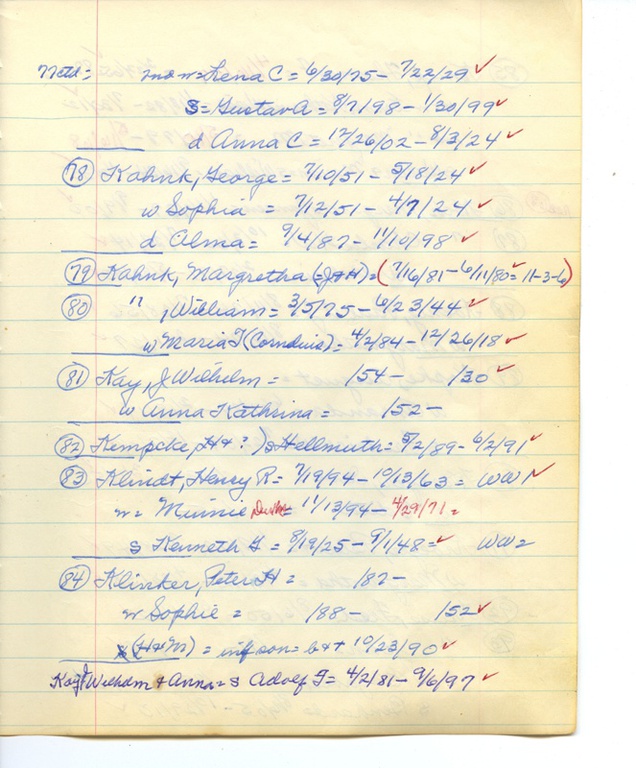 2nd w = Lena C = 6/30/75 - 7/22/29 ✓
S = Gustav A = 8/7/98 - 1/30/99 ✓
d Anna C = 12/26/02 - 8/3/24 ✓
(78) Kahnk, George = 7/10/51 - 5/18/24 ✓
w Sophia = 7/12/51 - 4/7/24 ✓
d Alma = 9/4/87 - 11/10/98 ✓
(79) Kahnk, Margretha (=J+H) = (7/16/81 - 6/11/80 = 11-3-6)
(80) " , William = 3/5/75 - 6/23/44 ✓
w Maria T (Cornduis) = 4/2/84 - 12/26/18 ✓
(81) Kay, J Wilhelm = /54 - /30 ✓
w Anna Kathrina = /52 -
(82) Kempcke, H + ? ) s Hellmuth = 5/2/89 - 6/2/91 ✓
(83) Klindt, Henry R = 7/19/94 - 10/13/63 = WW1 ✓
w = Minnie = 11/13/94 - 4/29/71 =
s Kenneth G = 8/19/25 - 9/1/48 = ✓ WW2
(84) Klinker, Peter H = /82 -
w Sophie = /88 - /52 ✓
(H + M) = inf son = b + + 10/23/90 ✓
Kay J Wilhelm + Anna = s Adolf F = 4/2/81 - 9/6/97 ✓